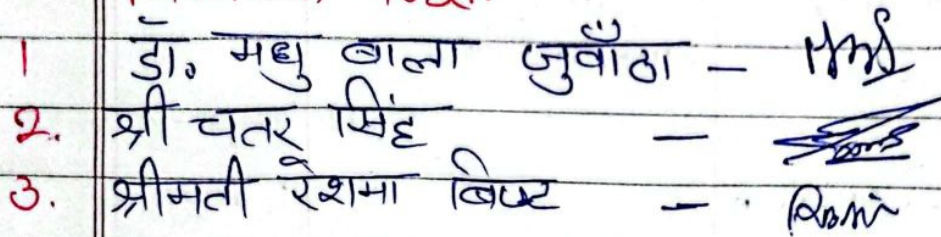 1 डॉ. मधु बाला जुवाँठा –
2. श्री चतर सिंह –
3. श्रीमती रेशमा बिष्ट –